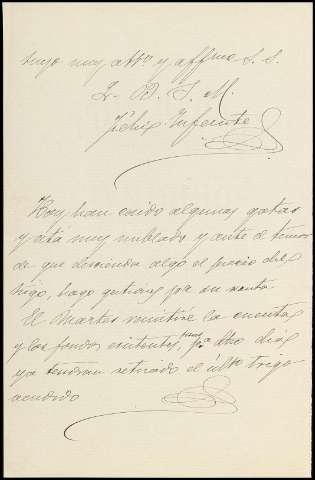 suyo muy atto y affmo s. s.
Q. B. S. M.
Felix Infante
Hoy han caido algunas gotas
y está muy nublado y ante el temor
de que descienda algo el precio del
trigo, hago gestiones por su venta
El Martes remitiré la cuenta
y los fondos existentes, pues pa dho dia
ya tendran retirado el últo trigo
acordado